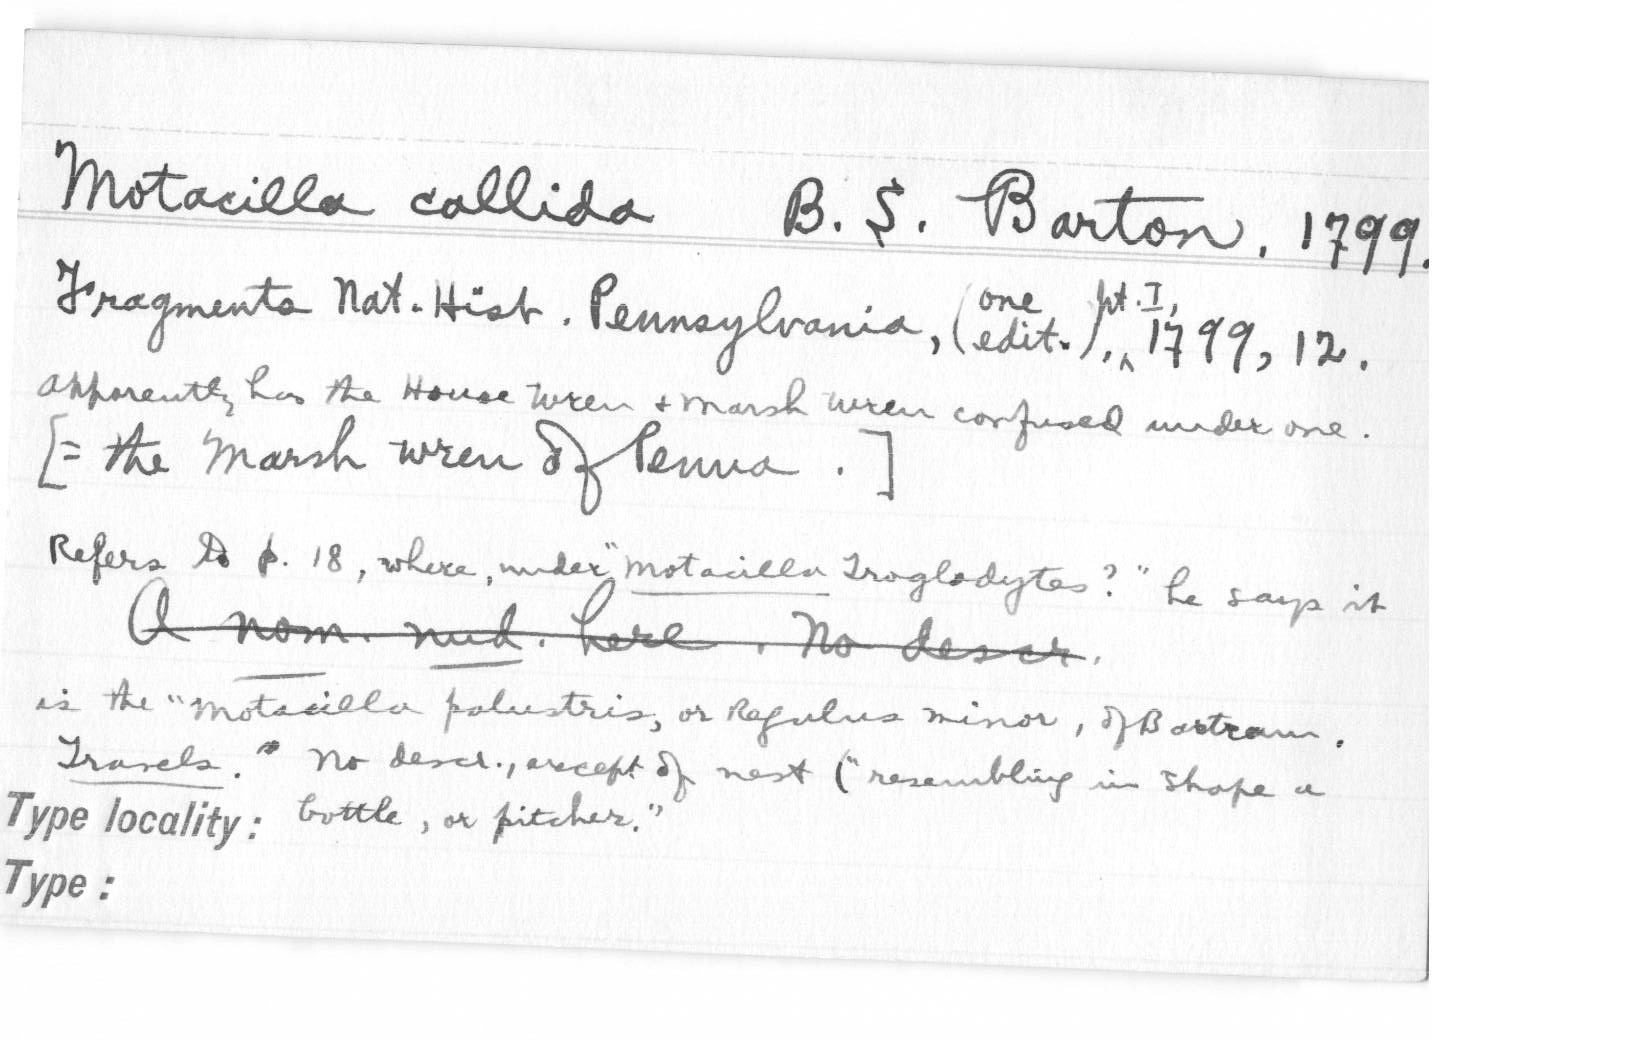 Motacilla callida B. S. Barton, 1799.
Fragments Nat. Hist. Pennsylvania, (one edit.), pt. I, 1799, 12.
apparently has the House Wren & Marsh Wren confused under one.
[= the Marsh wren of Penna.]
Refers to p. 18, where, under "Motacilla Troglodytes?" he says it
A nom. nud. here. No descr.
is the "Motacilla palustris, or Regulus minor, of Bartram.
Travels." No descr., except of nest ("resembling in shape a
Type locality: bottle, or pitcher."
Type: